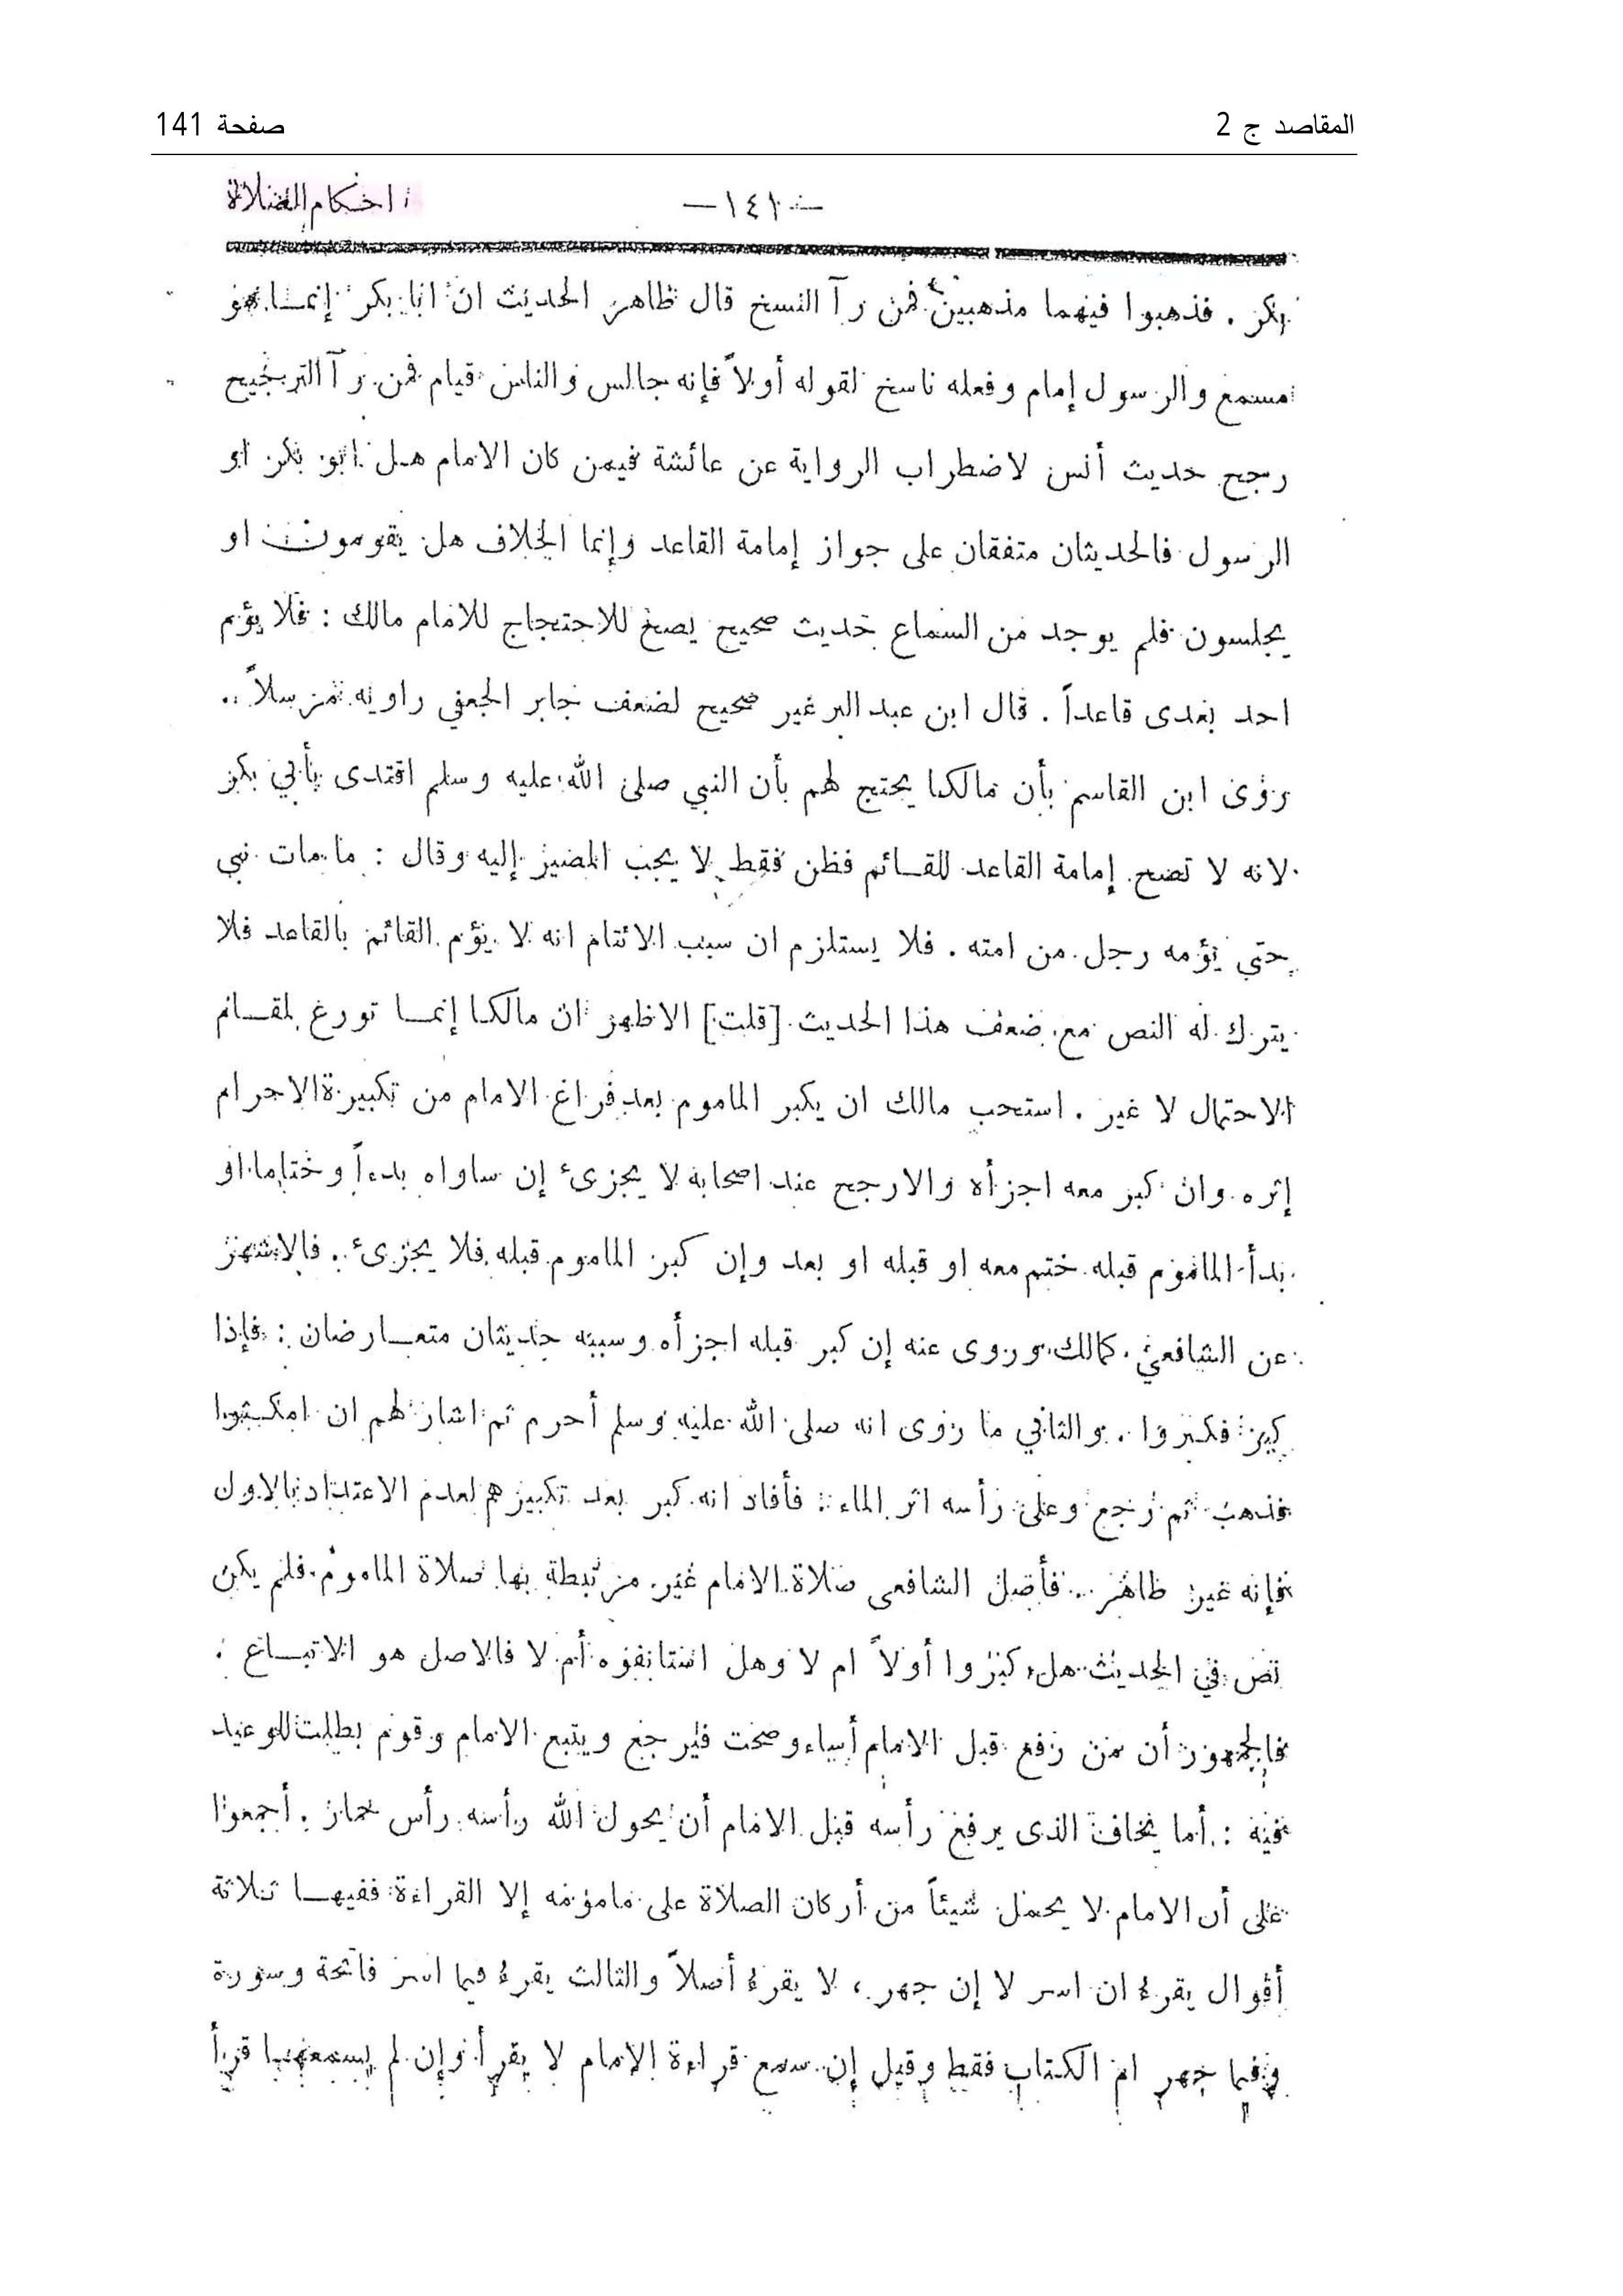 المقاصد ج 2
صفحة 141
احكام الصلاة
— ١٤١ —
بكر . فذهبوا فيهما مذهبين فمن رآ النسخ قال ظاهر الحديث ان ابا بكر إنما هو
مسمع والرسول إمام وفعله ناسخ لقوله أولاً فإنه جالس والناس قيام فمن رآ الترجيح
رجح حديث أنس لاضطراب الرواية عن عائشة فيمن كان الامام هل ابو بكر او
الرسول فالحديثان متفقان على جواز إمامة القاعد وإنما الخلاف هل يقومون او
يجلسون فلم يوجد من السماع حديث صحيح يصح للاحتجاج للامام مالك : فلا يؤم
احد بعدى قاعداً . قال ابن عبد البر غير صحيح لضعف جابر الجعفي راويه مرسلاً ..
روى ابن القاسم بأن مالكا يحتج لهم بأن النبي صلى الله عليه وسلم اقتدى بأبي بكر
لانه لا تصح إمامة القاعد للقائم فظن فقط لا يجب المصير إليه وقال : ما مات نبي
حتى يؤمه رجل من امته . فلا يستلزم ان سبب الائتام انه لا يؤم القائم بالقاعد فلا
يترك له النص مع ضعف هذا الحديث [قلت] الاظهر ان مالكا إنما تورع لمقام
الاحتمال لا غير . استحب مالك ان يكبر الماموم بعد فراغ الامام من تكبيرة الاحرام
إثره وان كبر معه اجزأه والارجح عند اصحابه لا يجزىء إن ساواه بدءاً وختاما او
بدأ الماموم قبله ختم معه او قبله او بعد وإن كبر الماموم قبله فلا يجزىء . فالاشهر
عن الشافعي كمالك وروى عنه إن كبر قبله اجزأه وسببه حديثان متعارضان : فإذا
كبر فكبروا . والثاني ما روى انه صلى الله عليه وسلم أحرم ثم اشار لهم ان امكثوا
فذهب ثم رجع وعلى رأسه اثر الماء : فأفاد انه كبر بعد تكبيرهم لعدم الاعتداد بالاول
فإنه غير ظاهر .. فأصل الشافعى صلاة الامام غير مرتبطة بها صلاة الماموم فلم يكن
نص في الحديث هل كبروا أولاً ام لا وهل استانفوه أم لا فالاصل هو الاتباع .
فالجمهور أن من رفع قبل الامام أساء وصحت فيرجع ويتبع الامام وقوم بطلت للوعيد
فيه : أما يخاف الذى يرفع رأسه قبل الامام أن يحول الله رأسه رأس حمار . أجمعوا
على أن الامام لا يحمل شيئاً من أركان الصلاة على مامومه إلا القراءة ففيها ثلاثة
أقوال يقرء ان اسر لا إن جهر ، لا يقرء أصلاً والثالث يقرء فيما اسر فاتحة وسورة
وفيما جهر ام الكتاب فقط وقيل إن سمع قراءة الامام لا يقرأ وإن لم يسمعها قرأ